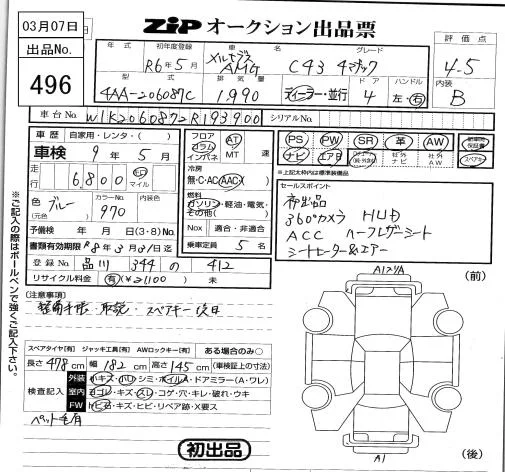 03月07日
ZIP オークション出品票
出品No.
496
年式
初年度登録
車名
グレード
評価点
R6年5月
メルセデス
AMG
C43 4マチック
4.5
型式
排気量
ドア
ハンドル
内装
4AA-206087C
1,990
ディーラー・並行
4
左・右
B
車台No.
W1K2060872R193900
シリアルNo.
車歴
自家用・レンタ・( )
車検
9年5月
走行
6,800
km
マイル
色
(元色)
ブルー
カラーNo.
970
内装色
予備検
年 月 日(3・8)No.
書類有効期限 R8年3月31日迄
登録No.
品川 344 の 412
リサイクル料金
有(¥21100) 未
フロア
コラム
インパネ
AT
MT
速
冷房
無・C・AC・AAC
燃料
ガソリン・軽油・電気・
その他( )
Nox
適合・非適合
乗車定員
5名
PS
PW
SR
革
AW
新車時
保証書
ナビ
エアB
社外
ナビ
社外
AW
スペアキー
※上記太枠内は標準装備品
セールスポイント
希出品
360°カメラ HUD
ACC ハーフレザーシート
シートヒーター&エアー
(注意事項)
整備手帳・取説・スペアキー後日
スペアタイヤ[有] ジャッキ工具[有] AWロックキー[有] ある場合のみ○
長さ 478 cm 幅 182 cm 高さ 145 cm (車検証上の寸法)
検査記入
外装
小キズ・小凹・シミ・オイルA・ドアミラー(A・ワレ)
室内
ヨゴレ・キズ・スレ・コゲ・穴・キレ・破れ・ウキ
FW
トビ石・キズ・ヒビ・リペア跡・X要ス
ペット毛有
初出品
(前)
(後)
A1
※ご記入の際はボールペンで強くご記入下さい。